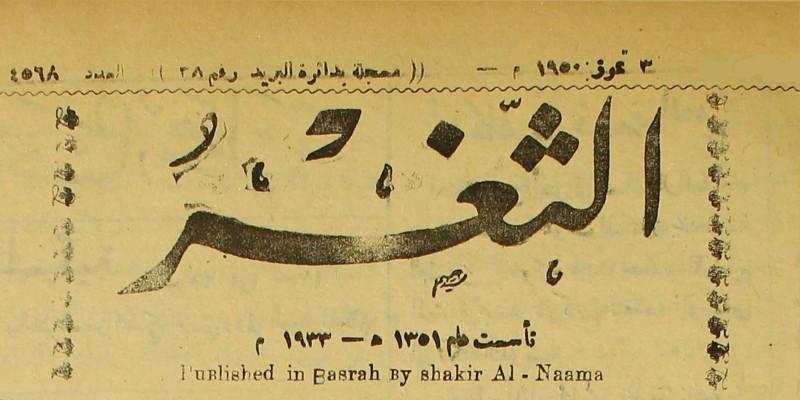 ٣ تموز ١٩٥٠ م — (( مسجلة بدائرة البريد رقم ٢٨ )) العدد ٤٥٦٨
الثَّغْرُ
تأسست عام ١٣٥١ ه — ١٩٣٣ م
Published in Basrah By shakir Al - Naama